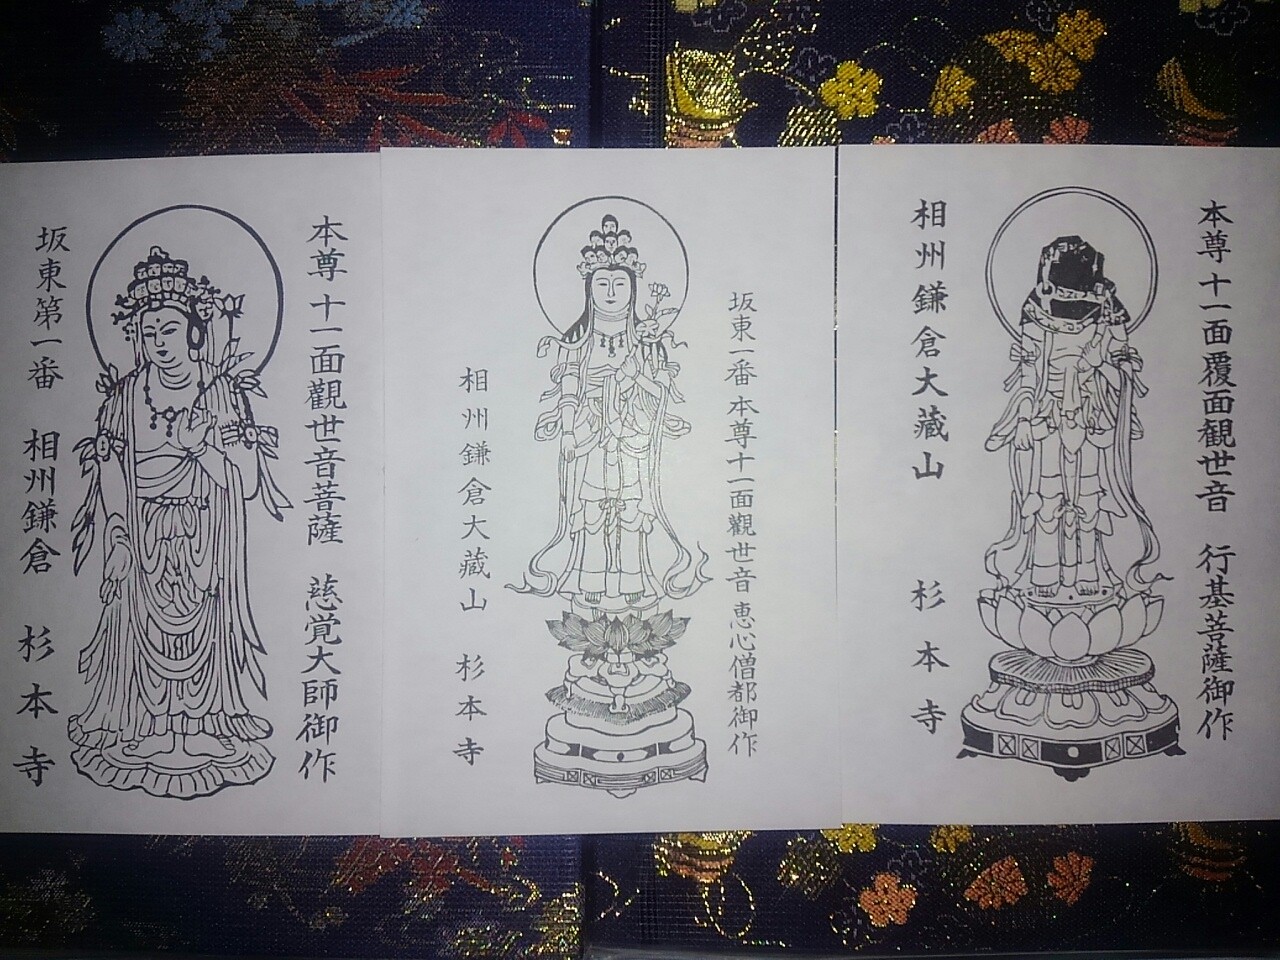 本尊十一面覆面観世音 行基菩薩御作
相州鎌倉大藏山 杉本寺
坂東一番本尊十一面觀世音恵心僧都御作
相州鎌倉大藏山 杉本寺
本尊十一面觀世音菩薩 慈覚大師御作
坂東第一番 相州鎌倉 杉本寺